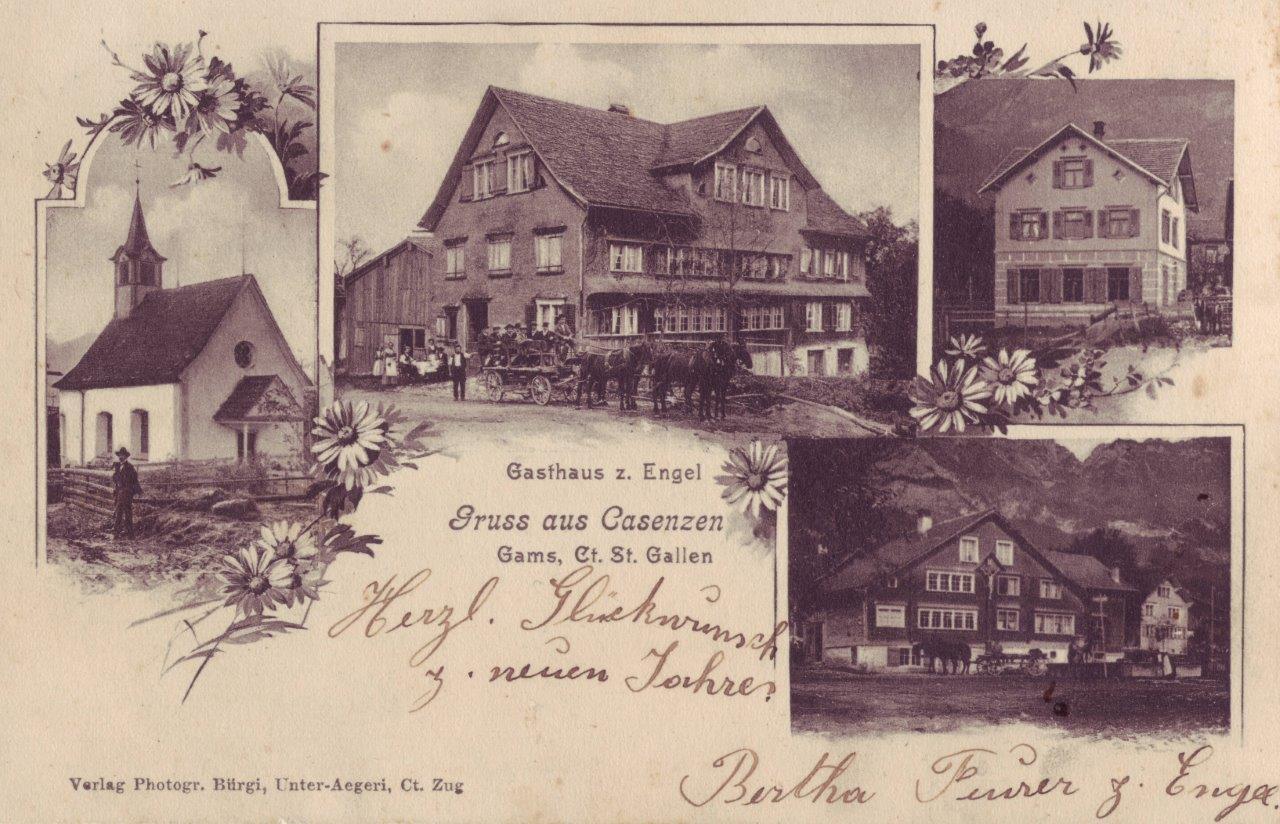 Gasthaus z. Engel
Gruss aus Casenzen
Gams, Ct. St. Gallen
Herzl. Glückwunsch
z. neuen Jahre.
Verlag Photogr. Bürgi, Unter-Aegeri, Ct. Zug
Bertha Feurer z. Engel.